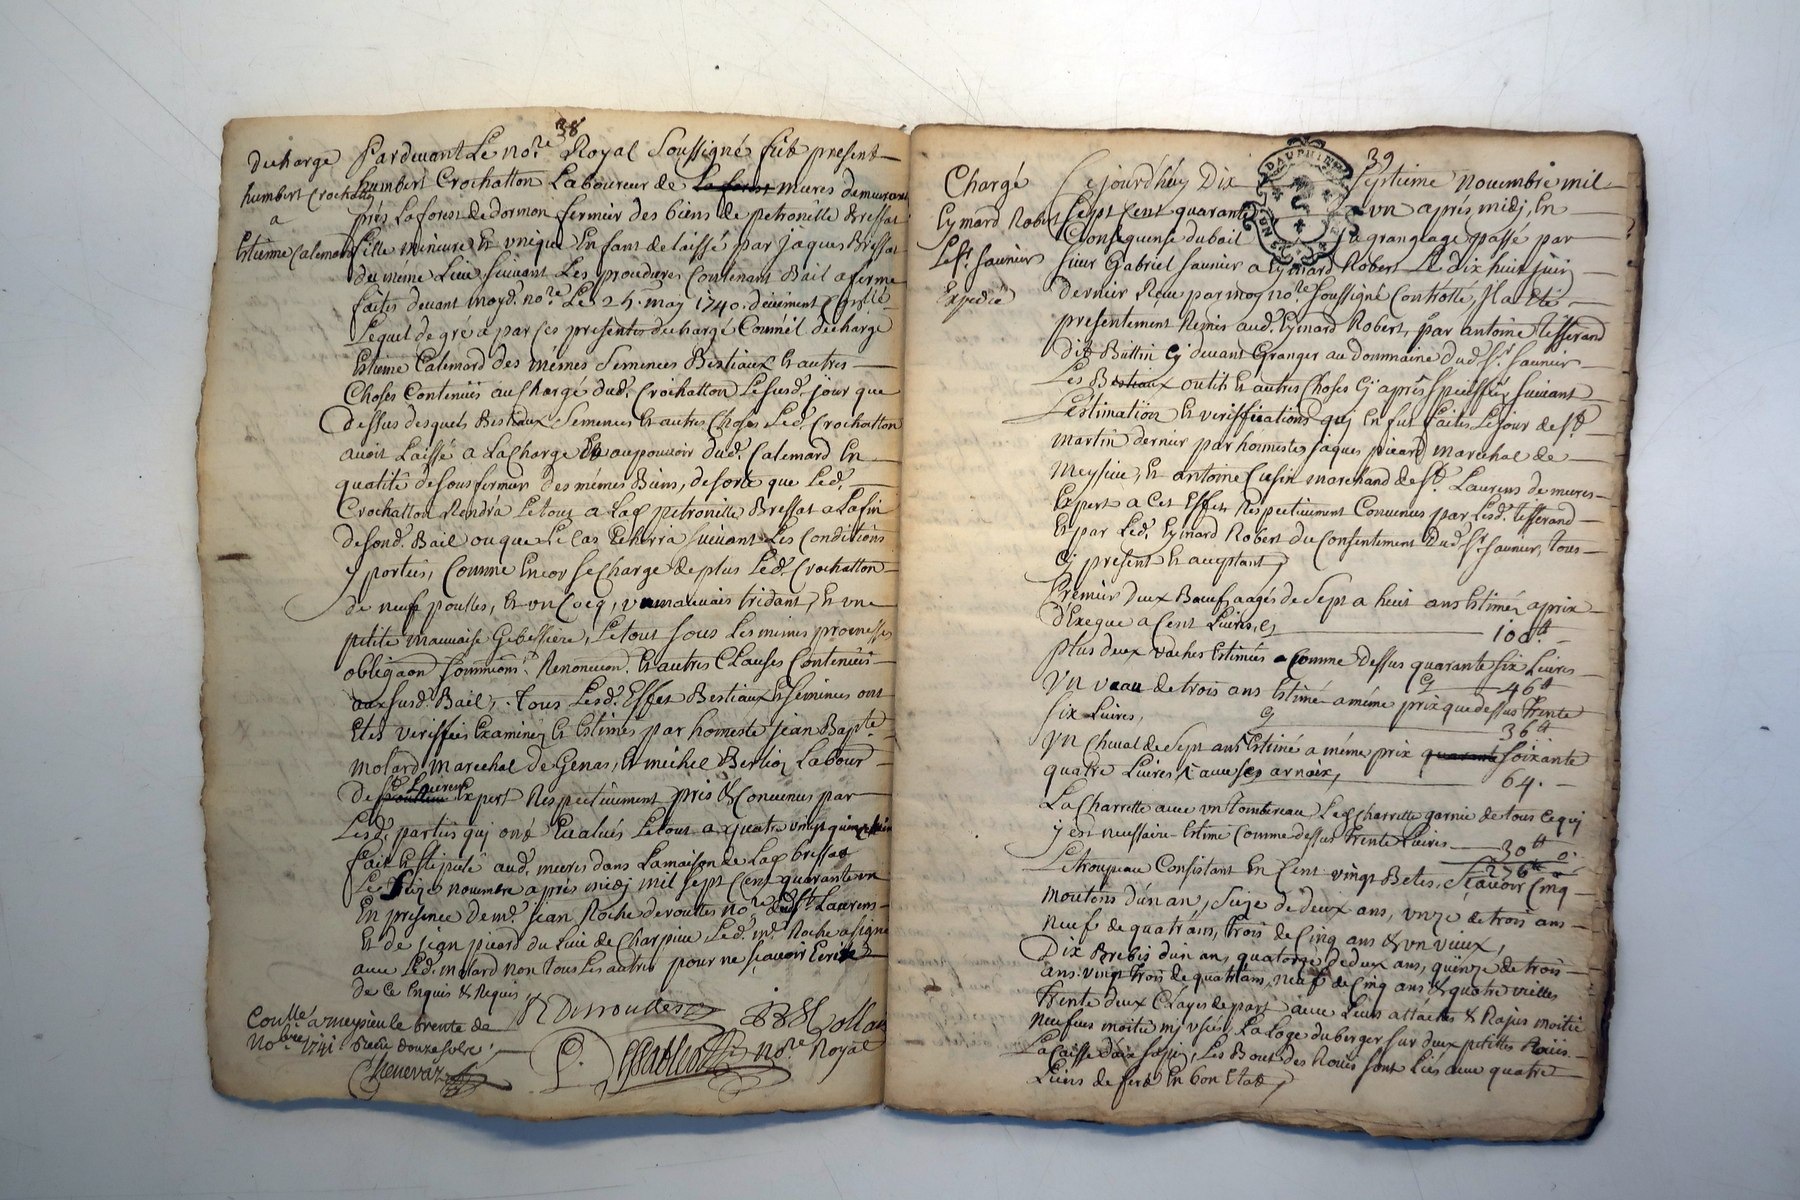 38
decharge
humbert Crochatton
a
Estienne Calemard
Pardevant Le no.re Royal Soussigné fut present
humbert Crochatton Laboureur de La forest mures demeurant
prés La forest de dormon fermier des biens de petronille Bressat
fille mineure Et unique Enfant delaissé par jaques Bressat
du méme Lieu suivant Les procedures Contenant Bail a ferme
faites devant moyd. no.re Le 25. may 1740. deuement C.llé
Lequel de gré a par Ces presentes dechargé Comme il decharge
Estienne Calemard des mémes Semences Bestiaux Et autres
Choses Contenües au Chargé dud. Crochatton Le susd. jour que
dessus desquels Bestiaux Semences Et autres Choses Led. Crochatton
avoit Laissé a La Charge Et au pouvoir dud. Calemard En
qualité de sousfermier des mémes Biens, de sorte que Led.
Crochatton Rendrá Le tout a Lad. petronille Bressat a La fin
de sond. Bail ou que Le Cas Echerra suivant Les Conditions
y portées, Comme Encor se Charge de plus Led. Crochatton
de neuf poulles, Et un Coq, un mauvais tridant, Et une
petite mauvaise Gibessiere, Le tout sous Les mémes promesses
obligaon soummions. Renoncion. Et autres Clauses Contenües
aux susd. Bail, tous Lesd. Effets Bestiaux Et semences ont
Etés veriffiés Examinéz Et Estimés par honneste jean Bap.te
molard marechal de Genas, Et michel Berlioz Labour.
de St Laurent Expert Respectivement pris & Convenus par
Lesd. parties qui ont Evalués Le tout a quatre vingt
fait Et stipulé aud. mures dans La maison de Lad. bressat
Le seize novembre aprés midj mil sept Cent quarante un
En presence de m.e jean Roche deroulles no.re dud. St Laurens
Et de jean picard du Lieu de Charpieu Led. m.e Roche a signé
avec Led. molard non tous Les autres pour ne sçavoir Ecrire
de Ce Enquis & Requis
no.re Royal
Coullé a meysieu le trente de
nobre 1741. Reçu douze sols
Chenevaz
39
DAUPHINE
Chargé
Eymard Robert
Le Sr. Saunier
Expedié
Cejourd'huy Dix Septieme novembre mil
Sept Cent quarante un aprés midj, En
Consequense du bail a grangeage passé par
sieur Gabriel Saunier a Eymard Robert Le dix huit juin
dernier Reçu par moy no.re soussigné Controllé, Il a Eté
presentement Remis aud. Eymard Robert, par antoine tisserand
dit Buttin Cj devant Granger au Dommaine dud. Sr. Saunier
Les Bestiaux outils Et autres Choses Cj aprés spesiffiéz suivant
L'estimation Et veriffications quj En fut faites Le jour de St.
martin dernier par honnestes jaques picard marechal de
Meysieu, Et antoine Cusin marchand de St. Laurens de mures
Expert a Cet Effet Respectivement Convenus par Lesd. tisserand
Et par Led. Eymard Robert du Consentement dud. Sr. Saunier, tous
Cj present Et acceptant,
Premier deux Bœufs aagés de Sept a huit ans Estiméz a prix
d'Exeque a Cent Livres, Cj 100tt
Plus deux vaches Estimées Comme dessus quarante six Livres
Cj 46tt
Un veau de trois ans Estimé a méme prix que dessus trente
six Livres, Cj 36tt
Un Cheval de Sept ans Estimé a méme prix quarante soixante
quatre Livres avec ses arnoix, 64.
La Charrette avec un tombereau Lad. Charrette garnie de tous Cequj
y est nessaire Estimé Comme dessus trente Livres 30tt
276tt
Le troupeau Consistant En Cent vingt Betes, sçavoir Cinq
moutons d'un an, seize de deux ans, unze de trois ans
neuf de quatr'ans, trois de Cinq ans & un vieux,
Dix Brebis d'un an, quatorze de deux ans, quinze de trois
ans. vingt trois de quatr'ans, neuf de Cinq ans & quatre vieilles
trente deux Clayes de parc avec Leurs attaches & Rajus moitié
neufves moitié mj usées, La Loge du berger sur deux petittes Roües
La Caisse d'aix sapin, Les Bout des Roües sont Liés avec quatre
Liens de fert En bon Etat,